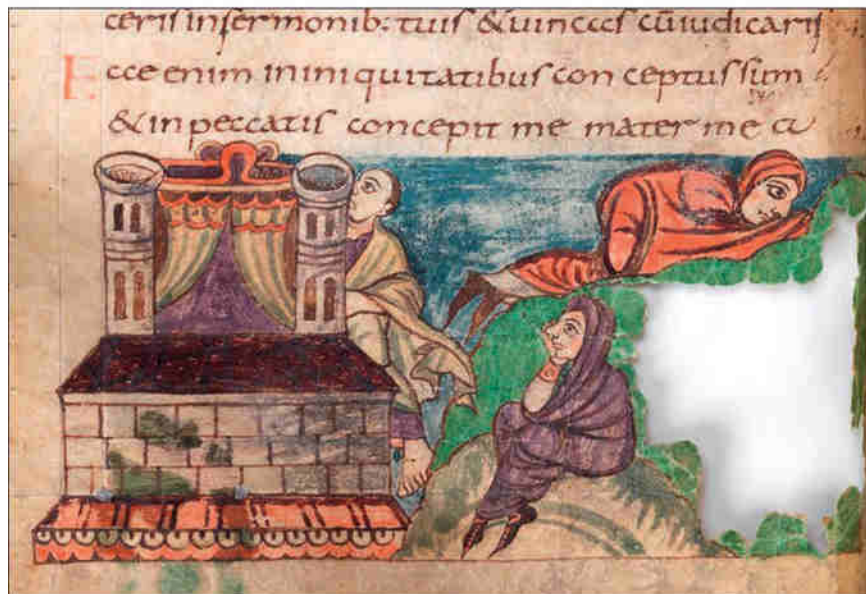 ceris in sermonib: tuis & uincas cū iudicaris
Ecce enim in iniquitatibus conceptus sum
& in peccatis concepit me mater mea